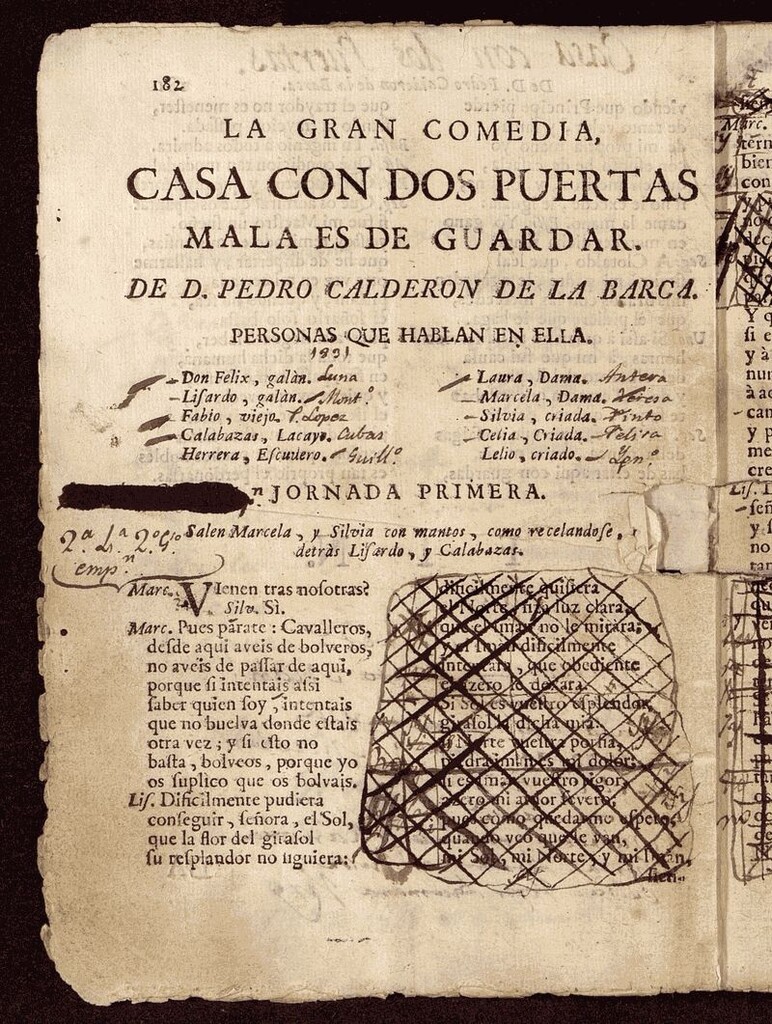 182
LA GRAN COMEDIA,
CASA CON DOS PUERTAS
MALA ES DE GUARDAR.
DE D. PEDRO CALDERON DE LA BARCA.
PERSONAS QUE HABLAN EN ELLA.
1831
Don Felix, galàn. Luna
Lisardo, galàn. Mont.º
Fabio, viejo. P. Lopez
Calabazas, Lacayo. Cubas
Herrera, Escudero. Guill.º
Laura, Dama. Antera
Marcela, Dama. Teresa
Silvia, criada. Pinto
Celia, Criada. Felisa
Lelio, criado.
JORNADA PRIMERA.
Salen Marcela, y Silvia con mantos, como recelandose,
detràs Lisardo, y Calabazas.
2ª
emp.n
Marc. Vienen tras nosotras?
Silv. Sì.
Marc. Pues pàrate: Cavalleros,
desde aqui aveis de bolveros,
no aveis de passar de aqui,
porque si intentais assi
saber quien soy, intentais
que no buelva donde estais
otra vez; y si esto no
basta, bolveos, porque yo
os suplico que os bolvais.
Lis. Dificilmente pudiera
conseguir, señora, el Sol,
que la flor del girasol
su resplandor no siguiera:
dificilmente quisiera
el Norte, fixa luz clara,
que el imàn no le mirara;
y el Imàn dificilmente
intentara, que obediente
el azero le dexara.
Si Sol es vuestro esplendor,
girasol la dicha mia:
si Norte vuestra porfia,
piedra imàn es mi dolor:
si es imàn vuestro rigor,
azero mi amor severo;
pues còmo quedarme espero,
quando veo que se van,
mi Sol, mi Norte, y mi Imàn,
Marc.
con
Y q
si e
y à
nun
à
can
y p
me
cre
Lis.
señ
y
no